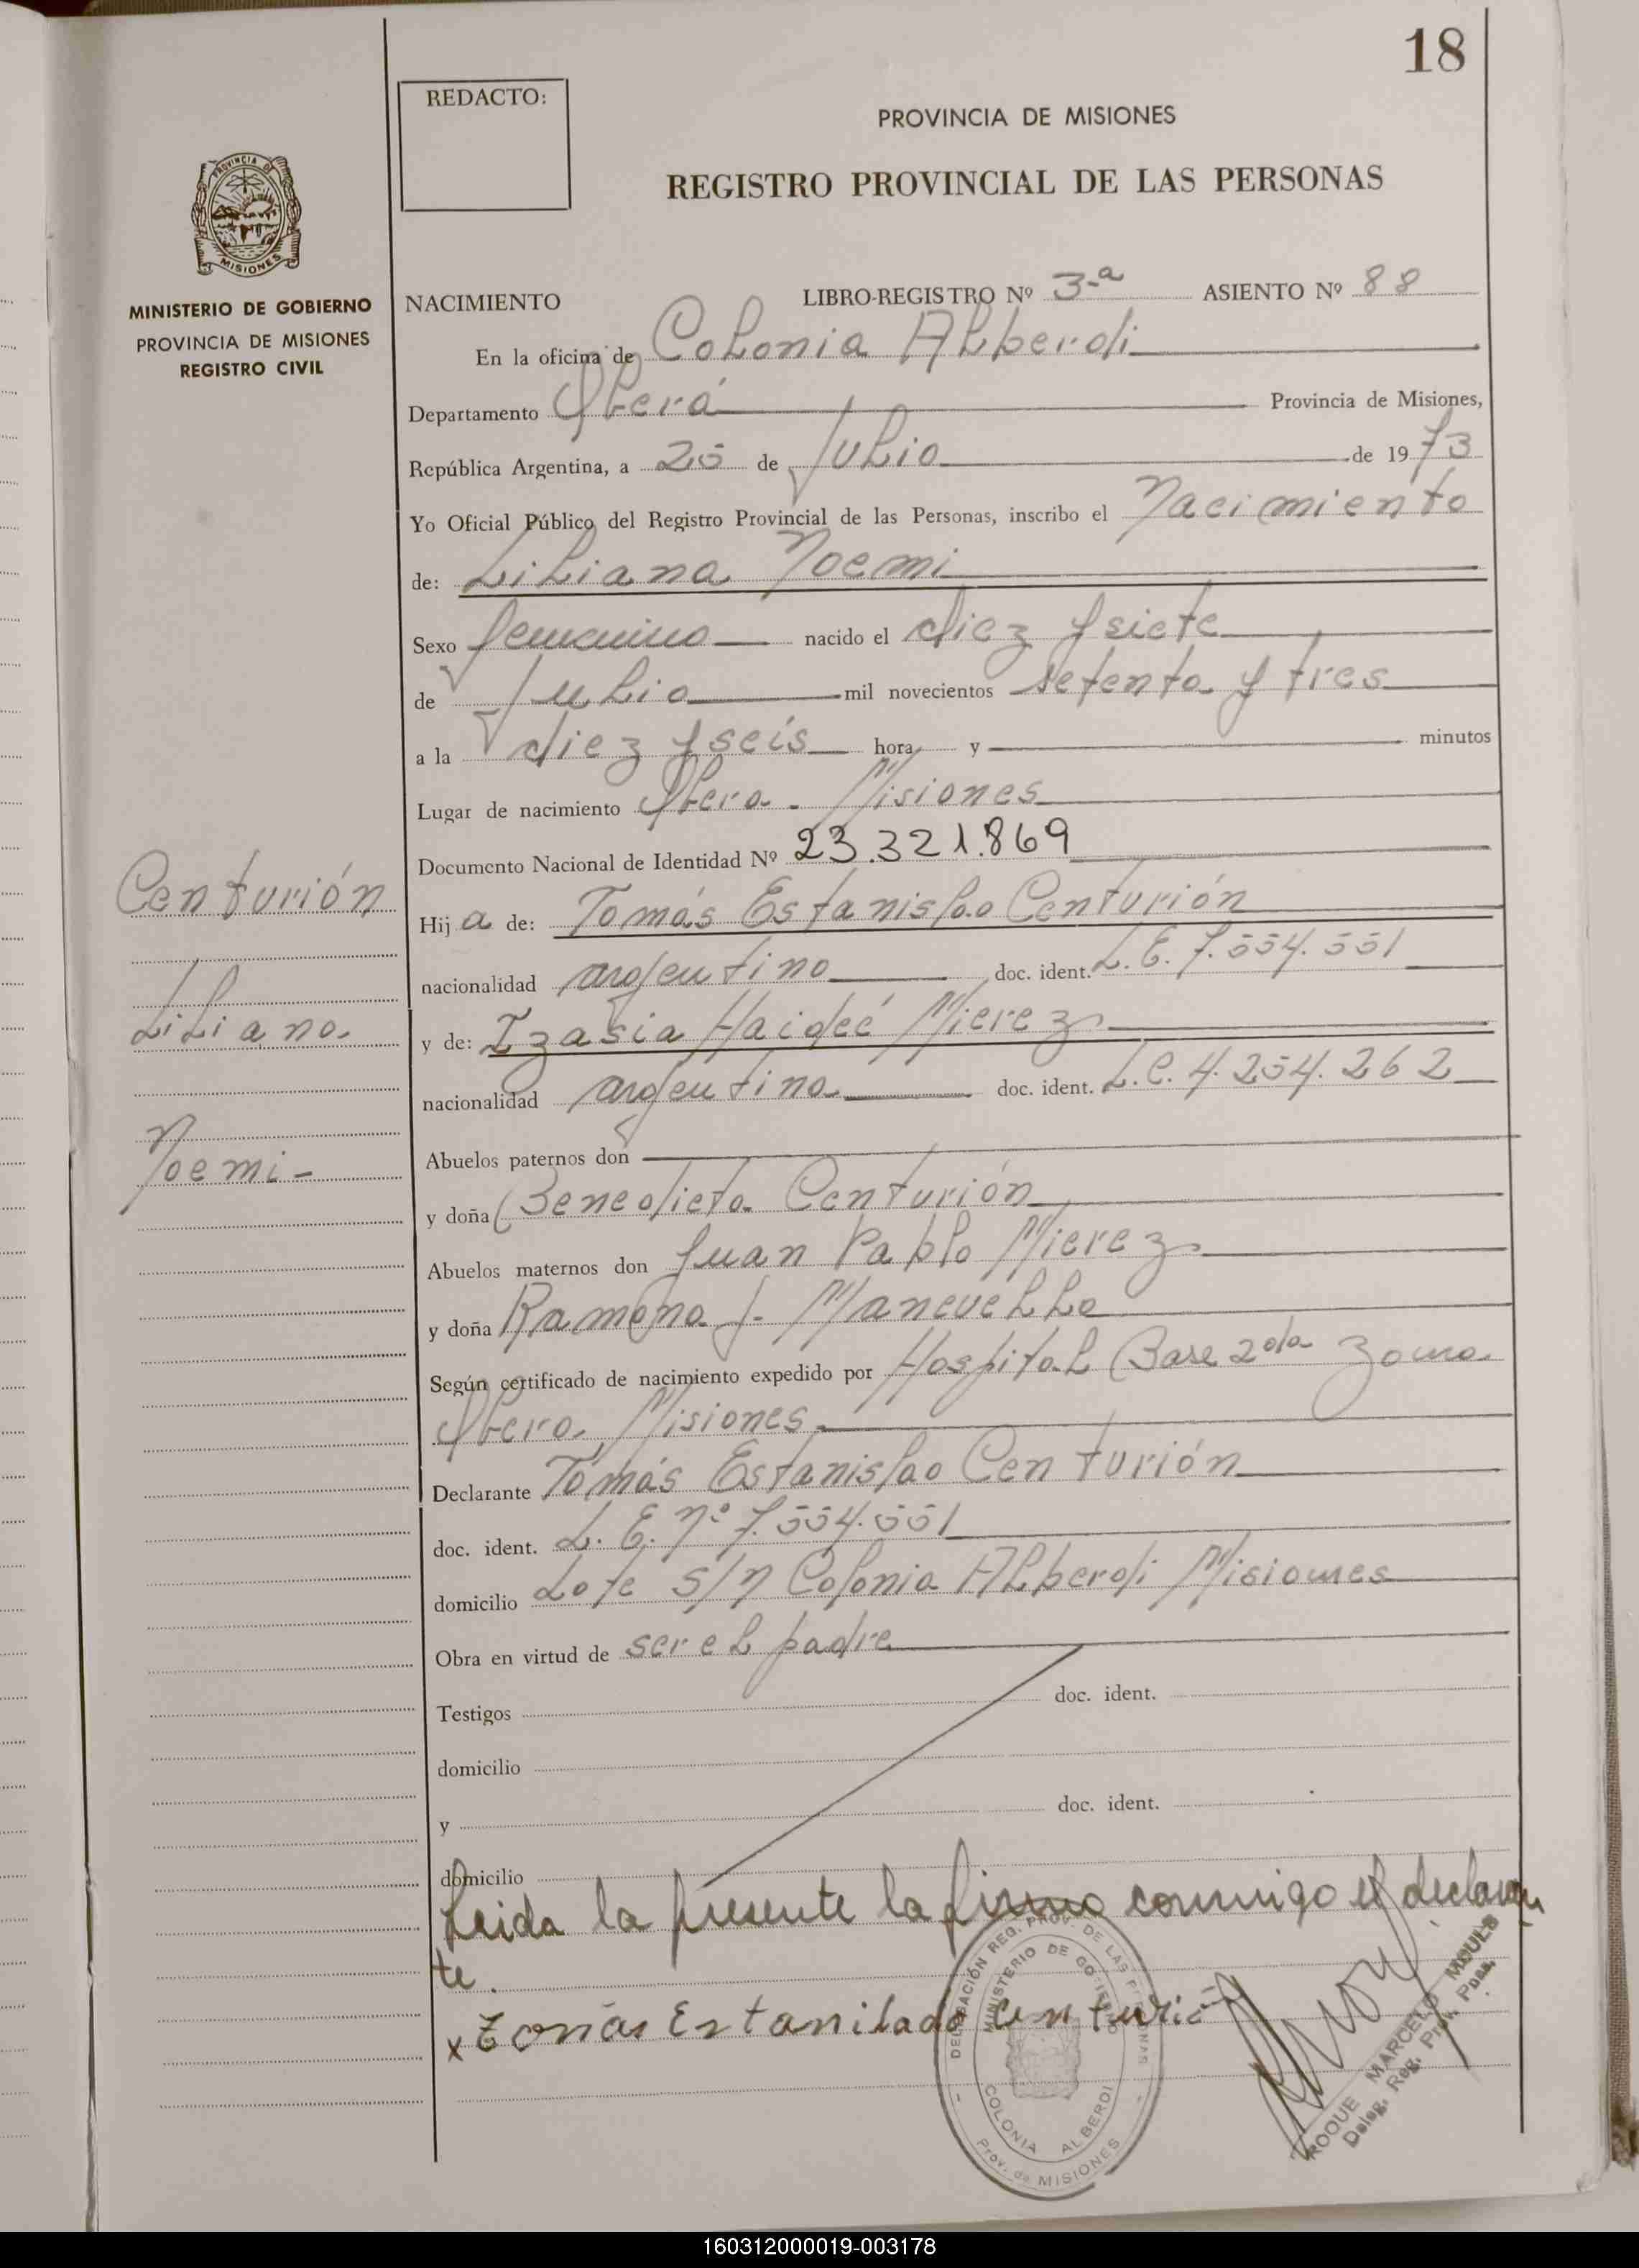 18
REDACTO:
PROVINCIA DE MISIONES
REGISTRO PROVINCIAL DE LAS PERSONAS
PROVINCIA DE
MISIONES
MINISTERIO DE GOBIERNO
PROVINCIA DE MISIONES
REGISTRO CIVIL
NACIMIENTO LIBRO-REGISTRO Nº 3-a ASIENTO Nº 88
En la oficina de Colonia Alberdi
Departamento Oberá Provincia de Misiones,
República Argentina, a 25 de Julio de 1973
Yo Oficial Público del Registro Provincial de las Personas, inscribo el Nacimiento
de: Liliana Noemi
Sexo femenino nacido el diez y siete
de Julio mil novecientos setenta y tres
a la diez y seis hora y minutos
Lugar de nacimiento Obera - Misiones
Documento Nacional de Identidad Nº 23.321.869
Centurión
Hij a de: Tomás Estanislao Centurión
nacionalidad argentino doc. ident. L.E. 7.554.551
Liliana
y de: Izasia Haideé Mierez
nacionalidad argentina doc. ident. L.C. 4.254.262
Noemi -
Abuelos paternos don
y doña Benedicta Centurión
Abuelos maternos don Juan Pablo Mierez
y doña Ramona J. Mancuello
Según certificado de nacimiento expedido por Hospital Base 2da Zona
Obera, Misiones
Declarante Tomás Estanislao Centurión
doc. ident. L.E. Nº 7.554.551
domicilio Lote S/N Colonia Alberdi Misiones
Obra en virtud de ser el padre
Testigos doc. ident.
domicilio
y doc. ident.
domicilio
Leida la presente la firma conmigo el declaran
te.
x Tomás Estanilado Centurió
DELEGACIÓN REG. PROV. DE LAS PERSONAS
MINISTERIO DE GOBIERNO
COLONIA ALBERDI
Prov. de MISIONES
ROQUE MARCELO MOULS
Deleg. Reg. Prov. Pnas.
160312000019-003178